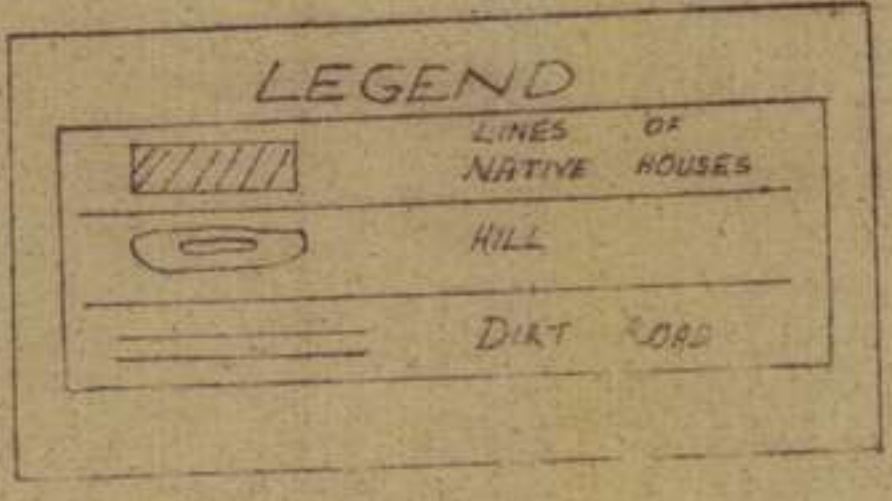 LEGEND
LINES OF
NATIVE HOUSES
HILL
DIRT ROAD